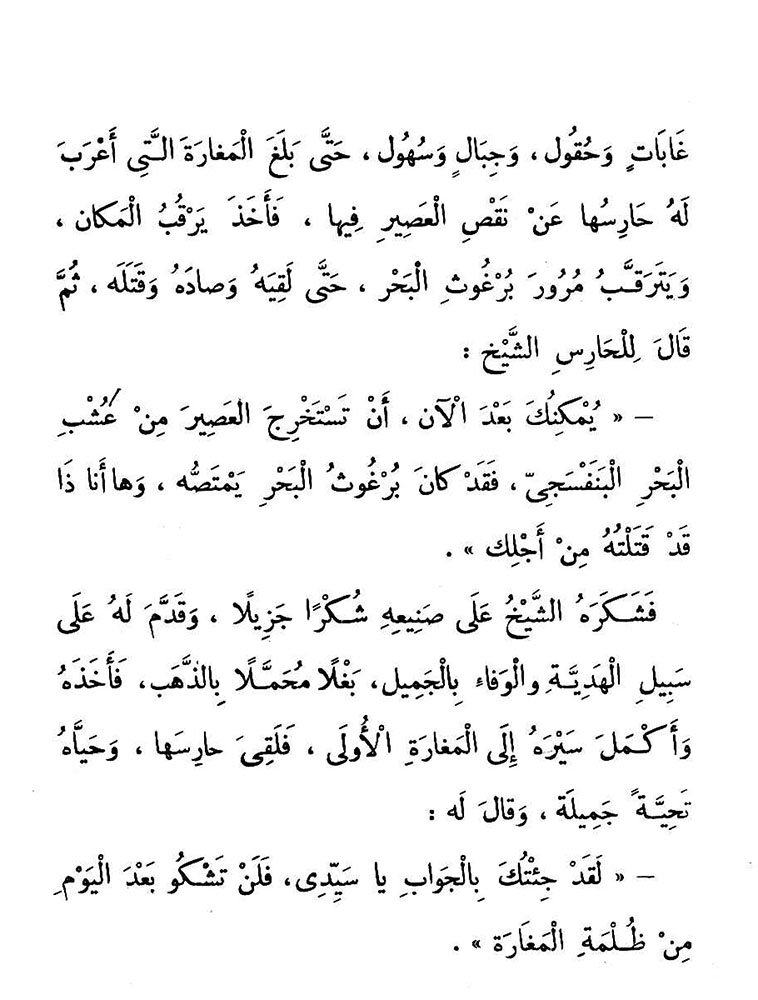 غَابَاتٍ وَحُقُول ، وَجِبَالٍ وَسُهُول ، حَتَّى بَلَغَ الْمَغارَةَ الَّتِى أَعْرَبَ
لَهُ حَارِسُها عَنْ نَقْصِ الْعَصِيرِ فِيها ، فَأَخَذَ يَرْقُبُ الْمَكان ،
وَيَتَرَقَّبُ مُرُورَ بُرْغُوثِ الْبَحْر ، حَتَّى لَقِيَهُ وَصادَهُ وَقَتَلَه ، ثُمَّ
قَالَ لِلْحَارِسِ الشَّيْخ :
— « يُمْكِنُكَ بَعْدَ الْآن ، أَنْ تَسْتَخْرِجَ الْعَصِيرَ مِنْ عُشْبِ
الْبَحْرِ الْبَنَفْسَجِىّ ، فَقَدْ كانَ بُرْغُوثُ الْبَحْرِ يَمْتَصُّه ، وَها أَنا ذَا
قَدْ قَتَلْتُهُ مِنْ أَجْلِك » .
فَشَكَرَهُ الشَّيْخُ عَلَى صَنِيعِهِ شُكْرًا جَزِيلًا ، وَقَدَّمَ لَهُ عَلَى
سَبِيلِ الْهَدِيَّةِ والْوَفاءِ بِالْجَمِيل ، بَغْلًا مُحَمَّلًا بِالذَّهَب ، فَأَخَذَهُ
وَأَكْمَلَ سَيْرَهُ إِلَى الْمَغارَةِ الْأُولَى ، فَلَقِىَ حارِسَها ، وَحَيَّاهُ
تَحِيَّةً جَمِيلَة ، وَقالَ لَه :
— « لَقَدْ جِئْتُكَ بِالْجَوابِ يا سَيِّدِى ، فَلَنْ تَشْكُو بَعْدَ الْيَوْمِ
مِنْ ظُلْمَةِ الْمَغَارَة » .